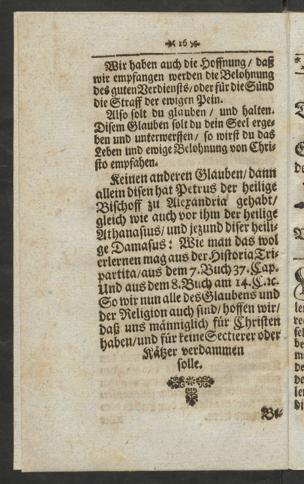 16
Wir haben auch die Hoffnung / daß
wir empfangen werden die Belohnung
des guten Verdiensts / oder für die Sünd
die Straff der ewigen Pein.
Also solt du glauben / und halten.
Disem Glauben solt du dein Seel erge-
ben und unterwerffen / so wirst du das
Leben und ewige Belohnung von Chri-
sto empfahen.
Keinen anderen Glauben / dann
allein disen hat Petrus der heilige
Bischoff zu Alexandria gehabt /
gleich wie auch vor ihm der heilige
Athanasius / und jezund diser heili-
ge Damasus: Wie man das wol
erlernen mag aus der Historia Tri-
partita / aus dem 7. Buch 37. Cap.
Und aus dem 8. Buch am 14. C. ꝛc.
So wir nun alle des Glaubens und
der Religion auch sind / hoffen wir /
daß uns männiglich für Christen
haben / und für keine Sectierer oder
Kätzer verdammen
solle.